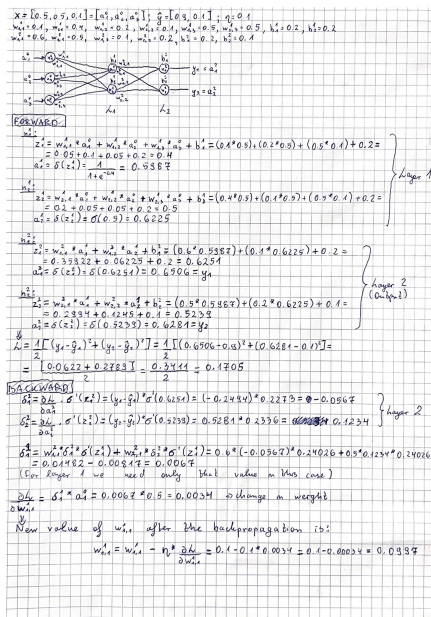 x = [0.5, 0.5, 0.1] = [a₁⁰, a₂⁰, a₃⁰] ; ŷ = [0.9, 0.1] ; η = 0.1
w¹₁,₁ = 0.1, w¹₁,₂ = 0.4, w¹₂,₁ = 0.2, w¹₂,₂ = 0.1, w¹₃,₁ = 0.5, w¹₃,₂ = 0.5, b¹₁ = 0.2, b¹₂ = 0.2
w²₁,₁ = 0.6, w²₁,₂ = 0.5, w²₂,₁ = 0.1, w²₂,₂ = 0.2, b²₁ = 0.2, b²₂ = 0.1
a₁⁰
a₂⁰
a₃⁰
y₁ = a₁²
y₂ = a₂²
L₁ L₂
FORWARD
n¹₁:
z¹₁ = w¹₁,₁ * a₁⁰ + w¹₂,₁ * a₂⁰ + w¹₃,₁ * a₃⁰ + b¹₁ = (0.1*0.5) + (0.2*0.5) + (0.5*0.1) + 0.2 =
= 0.05 + 0.1 + 0.05 + 0.2 = 0.4
a¹₁ = σ(z¹₁) = 1/(1+e^-0.4) = 0.5987
Layer 1
n¹₂:
z¹₂ = w¹₁,₂ * a₁⁰ + w¹₂,₂ * a₂⁰ + w¹₃,₂ * a₃⁰ + b¹₂ = (0.4*0.5) + (0.1*0.5) + (0.5*0.1) + 0.2 =
= 0.2 + 0.05 + 0.05 + 0.2 = 0.5
a¹₂ = σ(z¹₂) = σ(0.5) = 0.6225
n²₁:
z²₁ = w²₁,₁ * a¹₁ + w²₂,₁ * a¹₂ + b²₁ = (0.6*0.5987) + (0.1*0.6225) + 0.2 =
= 0.35922 + 0.06225 + 0.2 = 0.6251
a²₁ = σ(z²₁) = σ(0.6251) = 0.6506 = y₁
Layer 2
(Output)
n²₂:
z²₂ = w²₁,₂ * a¹₁ + w²₂,₂ * a¹₂ + b²₂ = (0.5*0.5987) + (0.2*0.6225) + 0.1 =
= 0.2994 + 0.1245 + 0.1 = 0.5239
a²₂ = σ(z²₂) = σ(0.5239) = 0.6281 = y₂
L = 1/2 [(y₁-ŷ₁)² + (y₂-ŷ₂)²] = 1/2 [(0.6506-0.9)² + (0.6281-0.1)²] =
= [0.0622 + 0.2789]/2 = 0.3411/2 = 0.1705
BACKWARD
δ²₁ = ∂L/∂a²₁ * σ'(z²₁) = (y₁-ŷ₁) * σ'(0.6251) = (-0.2494) * 0.2273 = -0.0567
δ²₂ = ∂L/∂a²₂ * σ'(z²₂) = (y₂-ŷ₂) * σ'(0.5239) = 0.5281 * 0.2336 = 0.1234
Layer 2
δ¹₁ = w²₁,₁ * δ²₁ * σ'(z¹₁) + w²₁,₂ * δ²₂ * σ'(z¹₁) = 0.6 * (-0.0567) * 0.24026 + 0.5 * 0.1234 * 0.24026
= 0.01482 - 0.00817 = 0.0067
(For layer 1 we need only that value in this case)
∂L/∂w¹₁,₁ = δ¹₁ * a₁⁰ = 0.0067 * 0.5 = 0.0034 ⇒ change in weight
New value of w¹₁,₁ after the backpropagation is:
w¹₁,₁ = w¹₁,₁ - η * ∂L/∂w¹₁,₁ = 0.1 - 0.1 * 0.0034 = 0.1 - 0.00034 = 0.0997